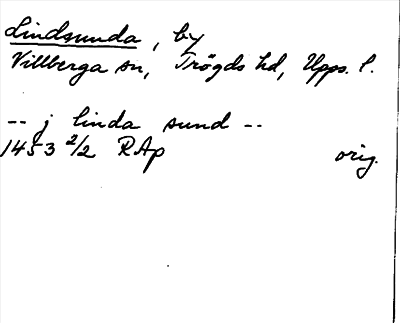 Lindsunda, by
Villberga sn, Trögds hd, Upps. l.
-- j linda sund --
1453 2/2 RAp orig.